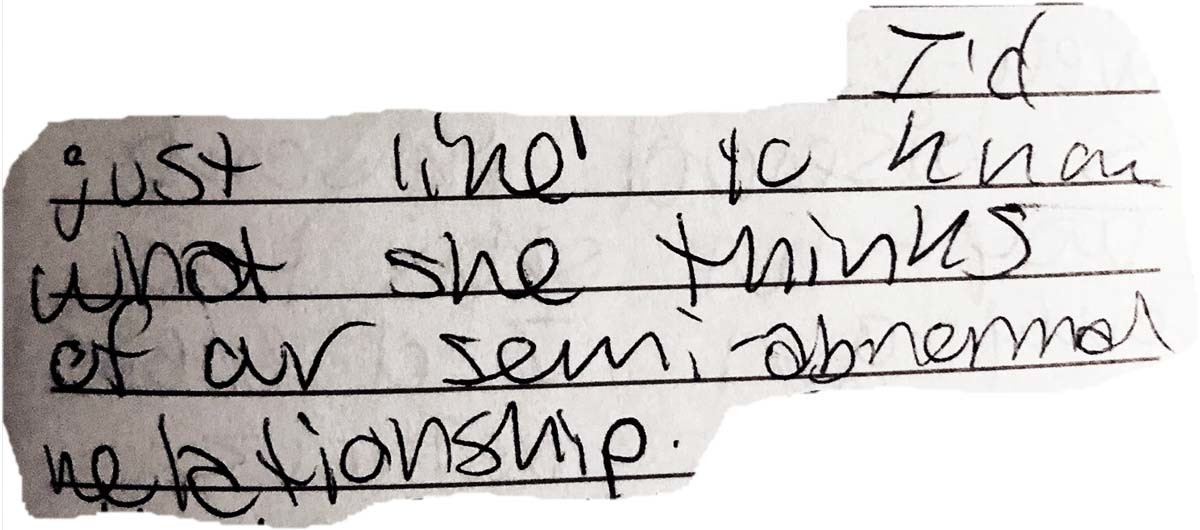 I'd
just like to know
what she thinks
of our semi-abnormal
relationship.